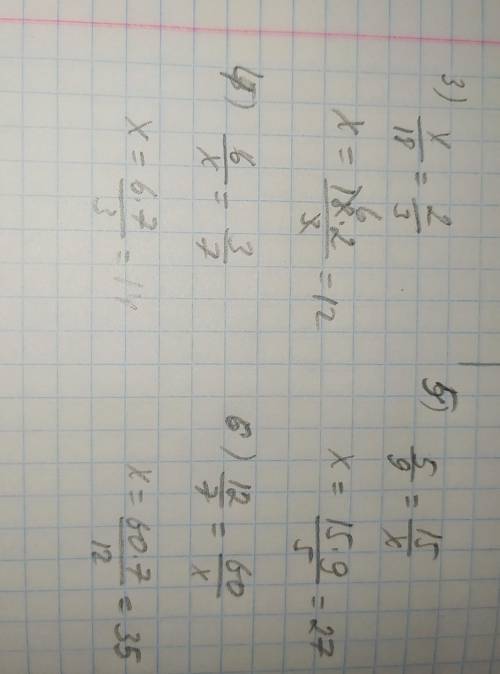 3) x/18 = 2/3
x = 18·2/3 = 12
6
4) 6/x = 3/7
x = 6·7/3 = 14
5) 5/9 = 15/x
x = 15·9/5 = 27
6) 12/7 = 60/x
x = 60·7/12 = 35